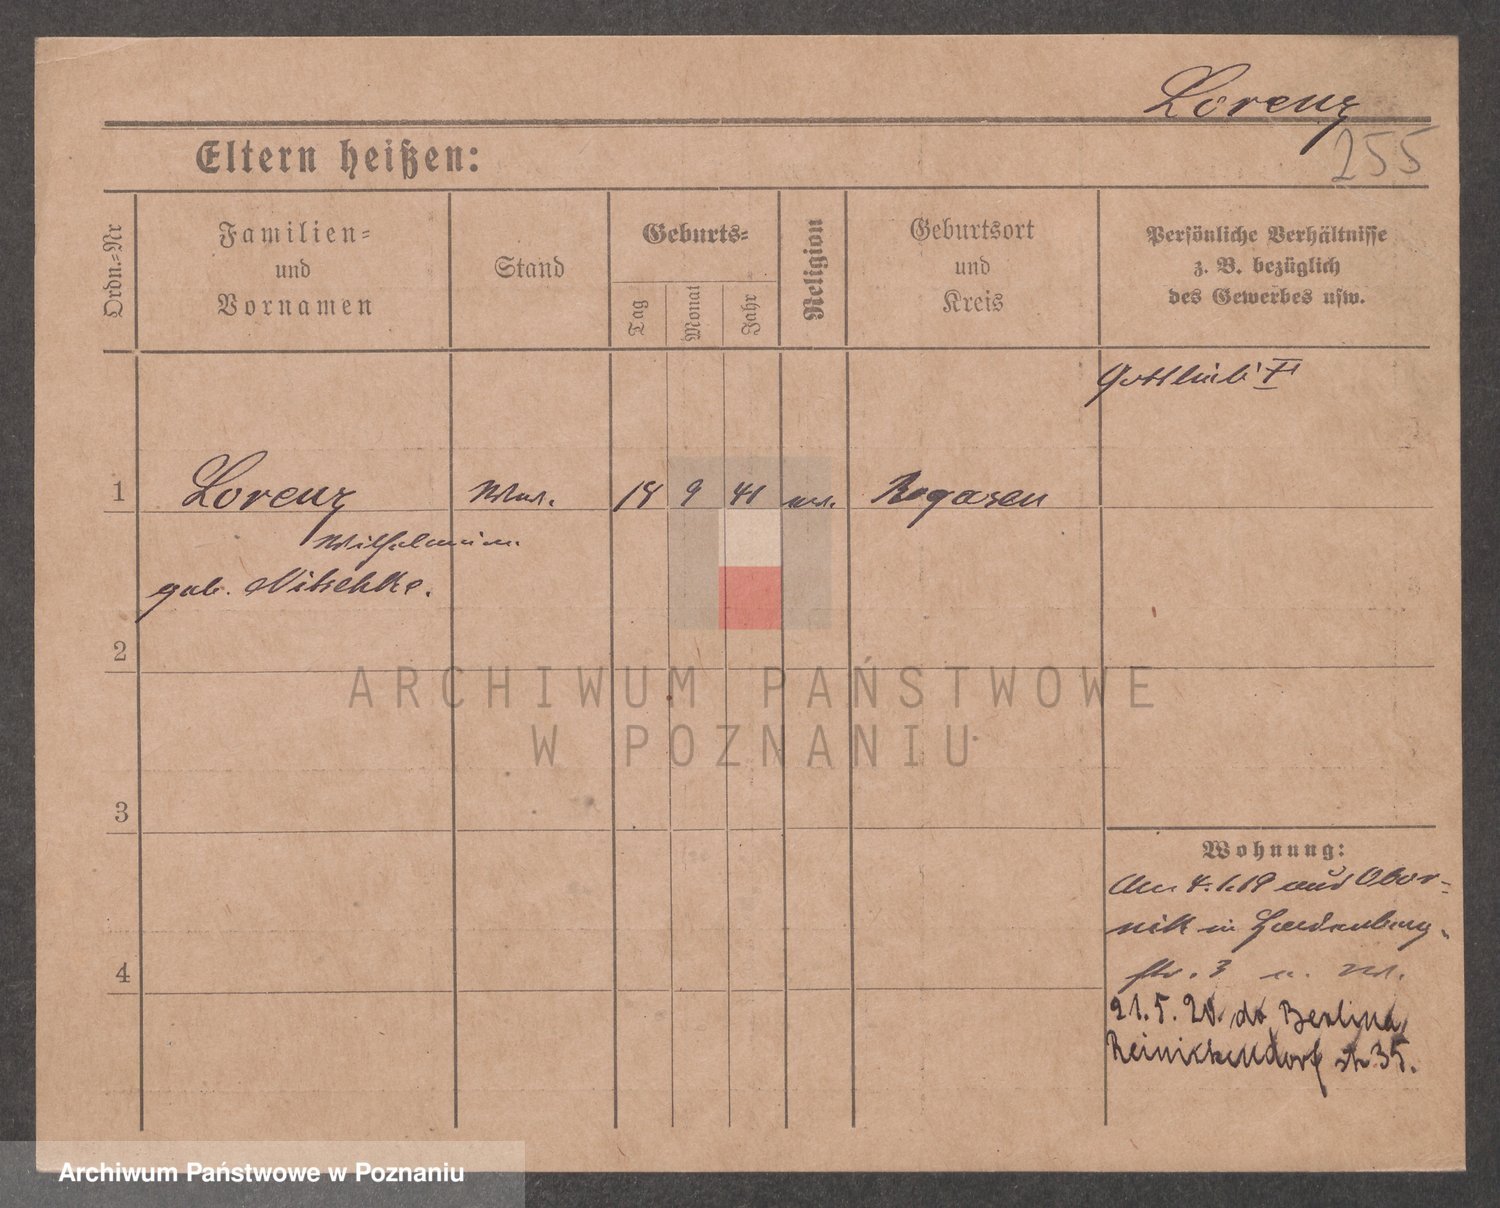 Lorenz
255
Eltern heißen:
Ordn.-Nr
Familien-
und
Vornamen
Stand
Geburts-
Tag
Monat
Jahr
Religion
Geburtsort
und
Kreis
Persönliche Verhältnisse
z. B. bezüglich
des Gewerbes usw.
Gottlieb †
1 Lorenz Wwe. 18 9 41 ev. Rogasen
Wilhelmine
geb. Nitschke.
2
ARCHIWUM PAŃSTWOWE
W POZNANIU
3
4
Wohnung:
Am 4.1.19 aus Obor-
nik in Hardenberg-
str. 3
21.5.20 do Berlina
Reinickendorf str 35.
Archiwum Państwowe w Poznaniu